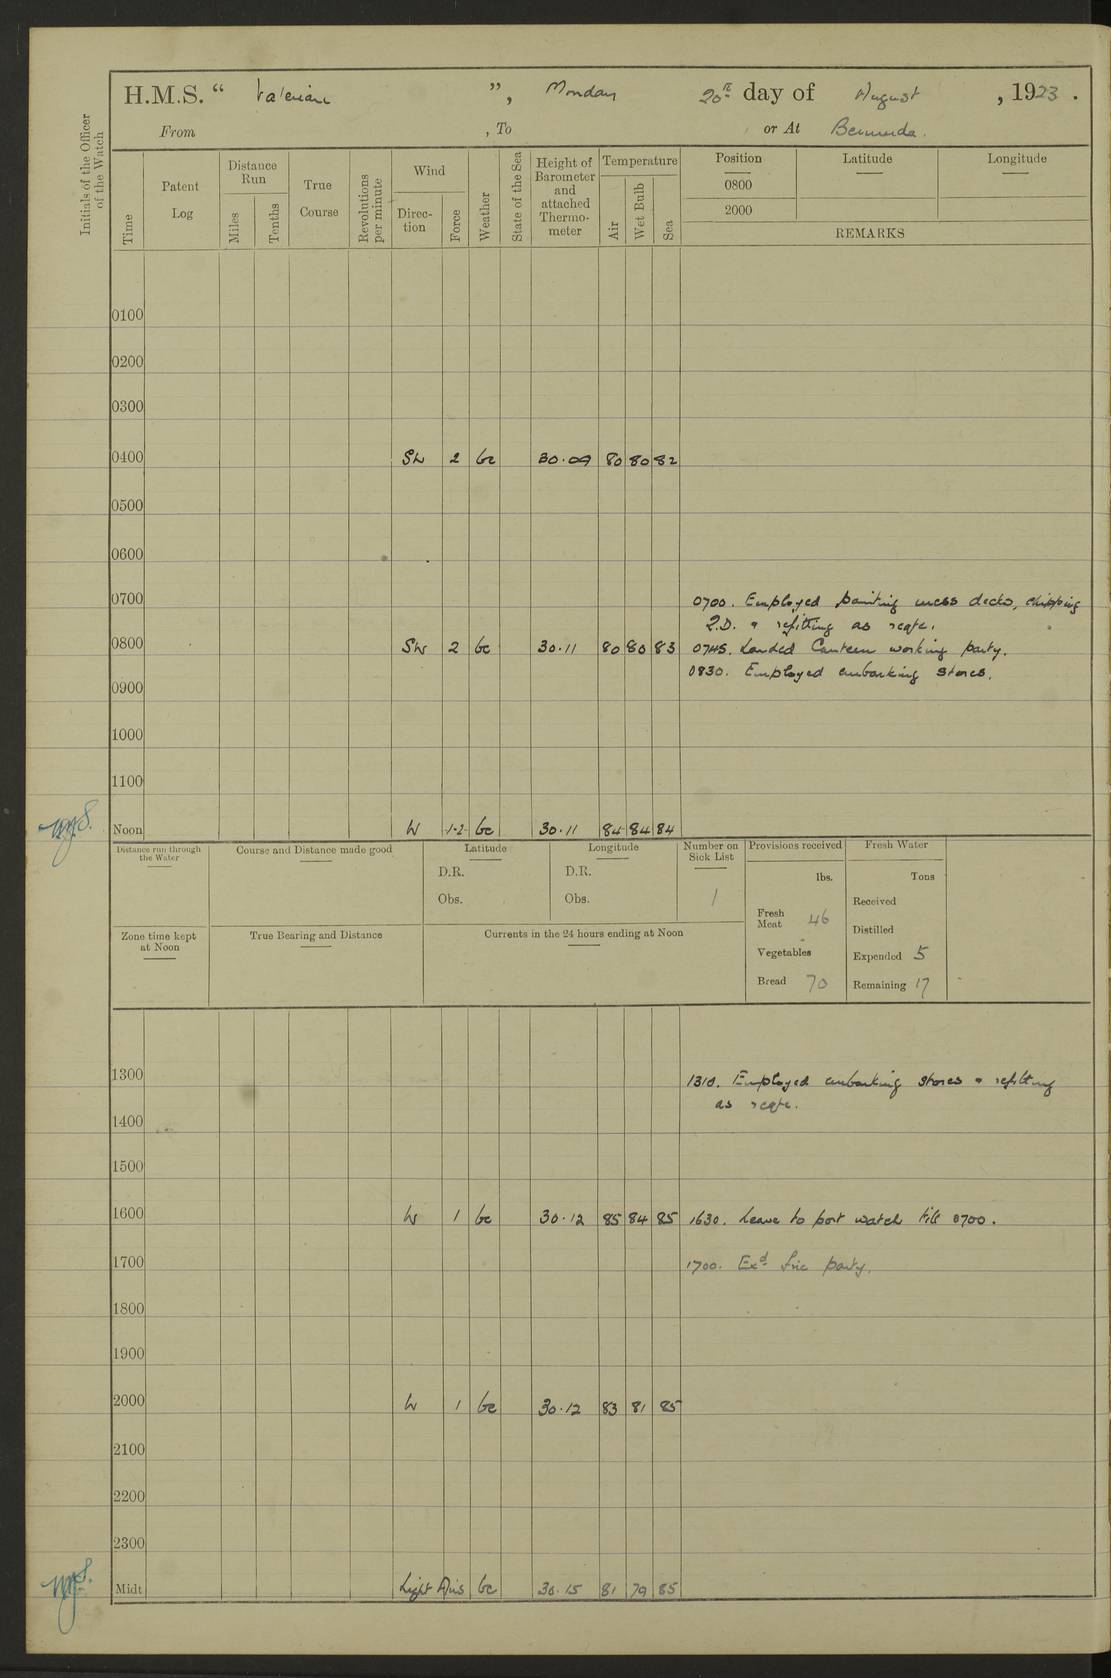 H.M.S. “ Valerian ”, Monday 20th day of August , 1923 .
From , To or At Bermuda.
Initials of the Officer of the Watch
Time
Patent Log
Distance Run
Miles
Tenths
True Course
Revolutions per minute
Wind
Direc-tion
Force
Weather
State of the Sea
Height of Barometer and attached Thermo-meter
Temperature
Air
Wet Bulb
Sea
Position Latitude Longitude
0800
2000
REMARKS
0100
0200
0300
0400 SW 2 bc 30.09 80 80 82
0500
0600
0700 0700. Employed painting mess decks, chipping
Q.D. & refitting as reqte.
0800 SW 2 bc 30.11 80 80 83 0745. Landed Canteen working party.
0830. Employed embarking stores.
0900
1000
1100
Noon W 1-2 bc 30.11 84 84 84
Distance run through the Water
Course and Distance made good
Latitude
D.R.
Obs.
Longitude
D.R.
Obs.
Number on Sick List
1
Provisions received
lbs.
Fresh Meat 46
Vegetables
Bread 70
Fresh Water
Tons
Received
Distilled
Expended 5
Remaining 17
Zone time kept at Noon
True Bearing and Distance
Currents in the 24 hours ending at Noon
1300 1310. Employed embarking stores & refitting
as reqte.
1400
1500
1600 W 1 bc 30.12 85 84 85 1630. Leave to port watch till 0700.
1700 1700. Exd fire party.
1800
1900
2000 W 1 bc 30.12 83 81 85
2100
2200
2300
Midt Light Airs bc 30.15 81 79 85